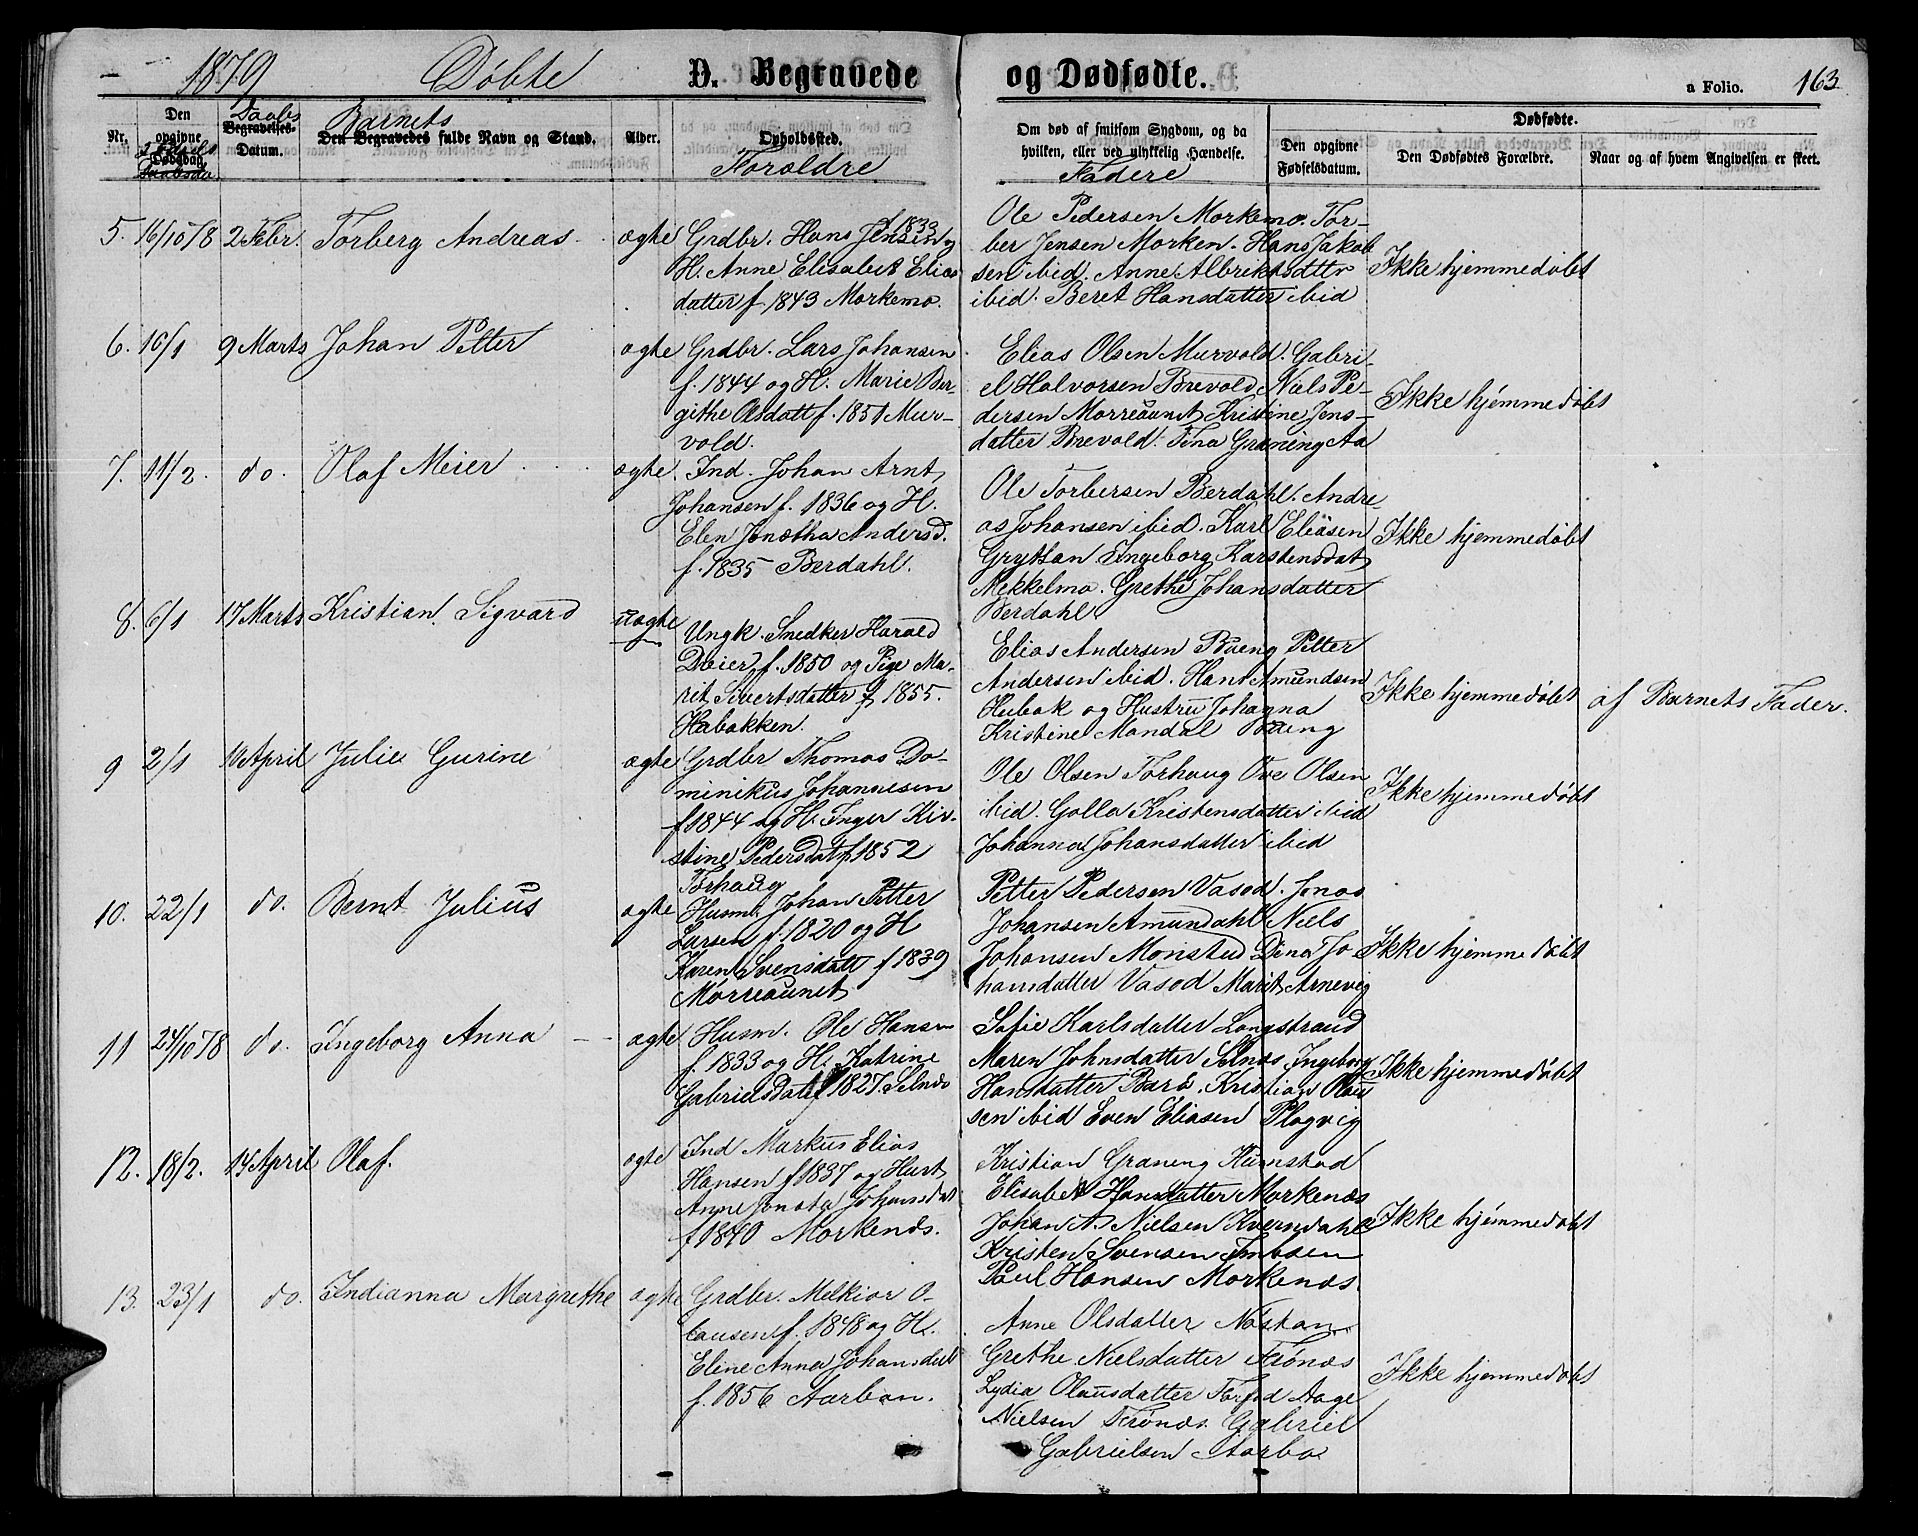 1879 Döbte D. Begravede og Dødfødte. a Folio. 163
Nr. Den opgivne Dødsdag. Fødsels Daabsda. Daabs Begravelses-Datum. Barnets Den Begravedes fulde Navn og Stand. Alder. Opholdssted. Foræ​ldre
Om død af smitsom Sygdom, og da hvilken, eller ved ulykkelig Hændelse. Fadere Den opgivne Fødselsdatum. Dødfødte. Den Dødfødtes Forældre. Naar og af hvem Angivelsen er skeet.
5. 16/10 78 2 Febr. Torberg Andreas. ægte Grdbr. Hans Jensen f 1833 og
H. Anne Elisabet Elias
datter f 1843 Morkemo.
Ole Pedersen Morkemo. Tor-
ber Jensen Morken. Hans Jakob
sen ibid. Anne Albriktsdttr
ibid. Beret Hansdatter ibid
Ikke hjemmedöbt
6. 16/1 9 Marts Johan Petter ægte Grdbr. Lars Johansen
f. 1844 og H. Marie Ber-
githe Olsdatt f. 1851 Mur-
vold.
Elias Olsen Murvold. Gabri-
el Halvorsen Brevold, Niels Pe-
dersen Morreaunet Kristine Jens-
datter Brevold. Tina Graning Aa
Ikke hjemmedöbt
7. 11/2. do. Olaf Meier ægte. Ind. Johan Arnt
Johansen f. 1836 og H.
Elen Jonetha Andersd.
f. 1835 Berdahl.
Ole Torbersen Berdahl. Andre-
as Johansen ibid. Karl Eliasen
Gryttan Ingeborg Karstensdat
Mekkelmo. Grethe Johansdatter
Berdahl
Ikke hjemmedöbt
8. 6/1 17 Marts Kristian Sigvard uægte
Ungk. Snedker Harald
Meier f. 1850 og Pige Ma-
rit Sivertsdatter f 1855.
Habakken.
Elias Andersen Baeng Petter
Andersen ibid. Hans Amundsen
Hubak og Hustru Johanna
Kristine Mandal Baeng
Ikke hjemmedöbt af Barnets Fader.
9 2/1 10 April Julie Gurine ægte Grdbr Thomas Do-
minikus Johannesen
f 1844 og H. Inger Kir-
stine Pedersdat f 1852
Torhaug
Ole Olsen Torhaug Ove Olsen
ibid. Golla Kristensdatter ibid
Johanna Johansdatter ibid
Ikke hjemmedöbt
10. 22/1 do. Bernt Julius ægte Husm. Johan Petter
Larsen f. 1820 og H
Karen Svensdatt f 1839
Morreaunet
Petter Pedersen Vasod. Jonas
Johansen Amundahl Niels
Johansen Monstad Dina Jo
hansdatter Vasod Marit Arnevig
Ikke hjemmedöbt
11 24/10 78 do. Ingeborg Anna ægte Husm. Ole Hansen
f. 1833 og H. Katrine
Gabrielsdat f 1827. Selnes
Sofie Karlsdatter Langstrand
Maren Johnsdatter Selnes, Ingeborg
Hansdatter Barö. Kristian Olau
sen ibid Even Eliasen Plogvig
Ikke hjemmedöbt
12. 18/2. 14 April Olaf. ægte Ind Markus Elias
Hansen f 1837 og Hust
Anne Joneta Johansdat
f 1840 Morkenæs.
Kristian Graneng Humstad
Elisabet Hansdatter Morkenæs
Johan A. Nielsen Kverndahl
Kristen Svensen
Paul Hansen Morkenæs.
Ikke hjemmedöbt
13. 23/1 do. Indianna Margrethe ægte Grdbr. Melkior O-
lausen f. 1848 og H.
Eline Anna Johansdatt
f. 1856 Aarbon.
Anne Olsdatter Nøstan
Grethe Nielsdatter Trönæs
Lydia Olausdatter Aage
Nielsen Trönæs. Gabriel
Gabrielsen Aarbo
Ikke hjemmedöbt